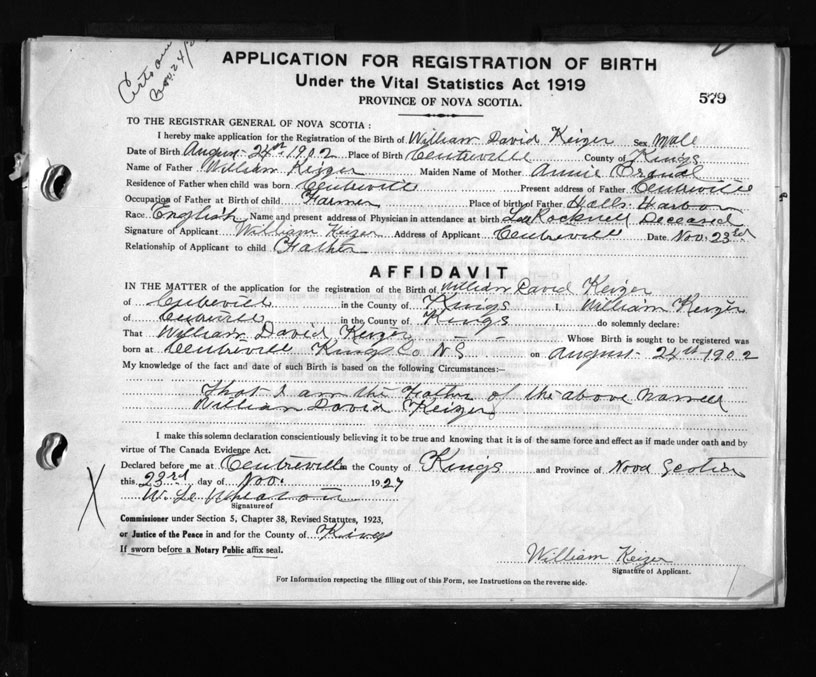 APPLICATION FOR REGISTRATION OF BIRTH
Under the Vital Statistics Act 1919
PROVINCE OF NOVA SCOTIA.
579
TO THE REGISTRAR GENERAL OF NOVA SCOTIA:
I hereby make application for the Registration of the Birth of William David Keizer Sex Male
Date of Birth August 24th 1902 Place of Birth Centreville County of Kings
Name of Father William Keizer Maiden Name of Mother Annie
Residence of Father when child was born Centreville Present address of Father Centreville
Occupation of Father at Birth of child Farmer Place of birth of Father Halls Harbour
Race English Name and present address of Physician in attendance at birth Rockwell Deceased
Signature of Applicant William Keizer Address of Applicant Centreville Date Nov. 23rd
Relationship of Applicant to child Father
AFFIDAVIT
IN THE MATTER of the application for the registration of the Birth of William David Keizer
of Centreville in the County of Kings I, William Keizer
of Centreville in the County of Kings do solemnly declare:
That William David Keizer Whose Birth is sought to be registered was
born at Centreville Kings Co N.S on August 24th 1902
My knowledge of the fact and date of such Birth is based on the following Circumstances:—
That I am the Father of the above
William David Keizer
I make this solemn declaration conscientiously believing it to be true and knowing that it is of the same force and effect as if made under oath and by
virtue of The Canada Evidence Act.
Declared before me at Centreville in the County of Kings and Province of Nova Scotia
this 23rd day of Nov. 1927
Signature of
Commissioner under Section 5, Chapter 38, Revised Statutes, 1923,
or Justice of the Peace in and for the County of Kings
If sworn before a Notary Public affix seal.
William Keizer
Signature of Applicant.
For Information respecting the filling out of this Form, see Instructions on the reverse side.